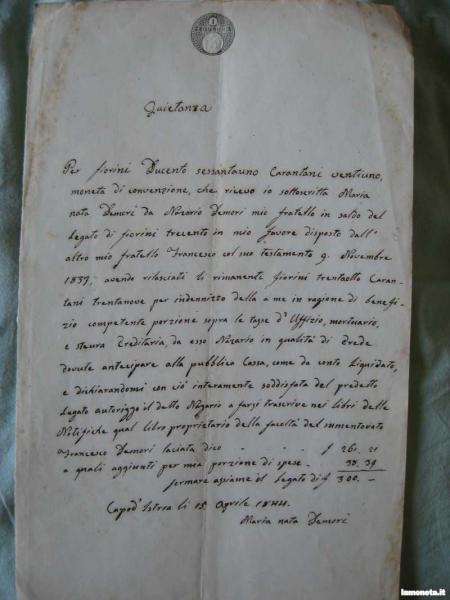 Quietanza
Per fiorini Ducento sessantauno Carantani ventiuno,
moneta di convenzione, che ricevo io sottoscritta Maria
nata Demori da Nazario Demori mio fratello in saldo del
Legato di fiorini trecento in mio favore disposto dall'
altro mio fratello Francesco col suo testamento 9. Novembre
1837; avendo rilasciati li rimanenti fiorini trentaotto Caran-
tani trentanove per indennizzo della a me in ragione di benefi-
zio competente porzione sopra le tasse d'Uffizio, mortuario,
e steura Ereditaria, da esso Nazario in qualità di Erede
dovute antecipare alla pubblica Cassa, come da conto Liquidato,
e dichiarandomi con ciò interamente soddisfatta del predetto
Legato autorizzo il detto Nazario a farsi trascrive nei libri delle
Notifiche qual libro proprietario della facoltà del sumentovato
Francesco Demori laciata dico - - - f 261. 21
a quali aggiunti per mia porzione di spese - 38. 39
formare assieme il Legato di f 300. -
Capod'Istria li 15. Aprile 1844.
Maria nata Demori
lamoneta.it